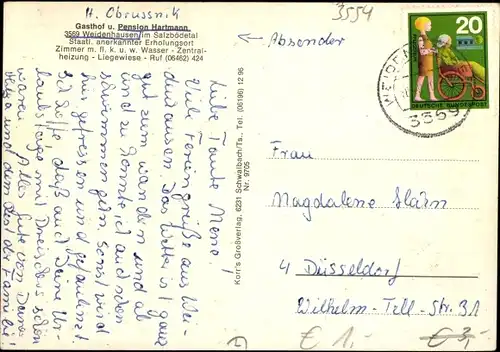 H. Obrussnik
Gasthof u. Pension Hartmann
3569 Weidenhausen/im Salzbödetal
Staatl. anerkannter Erholungsort
Zimmer m. fl. k. u. w. Wasser - Zentral-
heizung - Liegewiese - Ruf (06462) 424
3554
← Absender
20
DEUTSCHE BUNDESPOST
3569
Liebe Tante Mene!
Viele Feriengrüße aus Wei-
denhausen. Das Wetter ist ganz
gut zum wandern und ab
und zu konnte ich auch schon
schwimmen gehn, sonst wird
hier gefressen und gefaulenzt.
Ich hoffe daß auch Deine Ur-
laubstage mit schön
waren. Alles Gute von Deiner
und dem Rest der Familie
Korr's Großverlag, 6231 Schwalbach/Ts., Tel. (06196) 12 95
Nr. 9705
Frau
Magdalene
4 Düsseldorf
Wilhelm-Tell-Str. 31
€ 1,-
€ 3,-